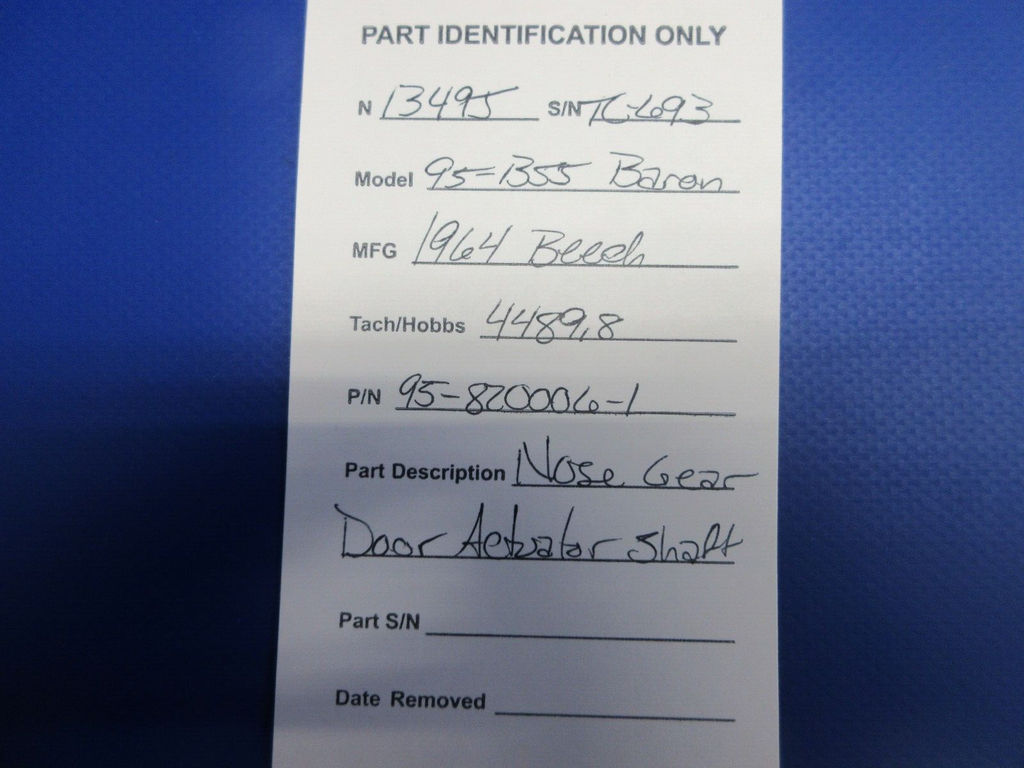 PART IDENTIFICATION ONLY
N 13495 S/N TC-693
Model 95-B55 Baron
MFG 1964 Beech
Tach/Hobbs 4489.8
P/N 95-820006-1
Part Description Nose Gear
Door Actuator Shaft
Part S/N
Date Removed